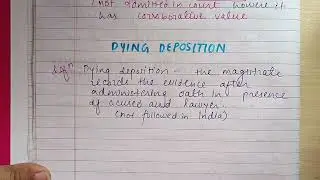 not admitted in court howere it
has corroborative value
DYING DEPOSITION
Defn Dying deposition - the magistrate
record the evidence after
administering oath in presence
of accused and lawyer
(not followed in India)